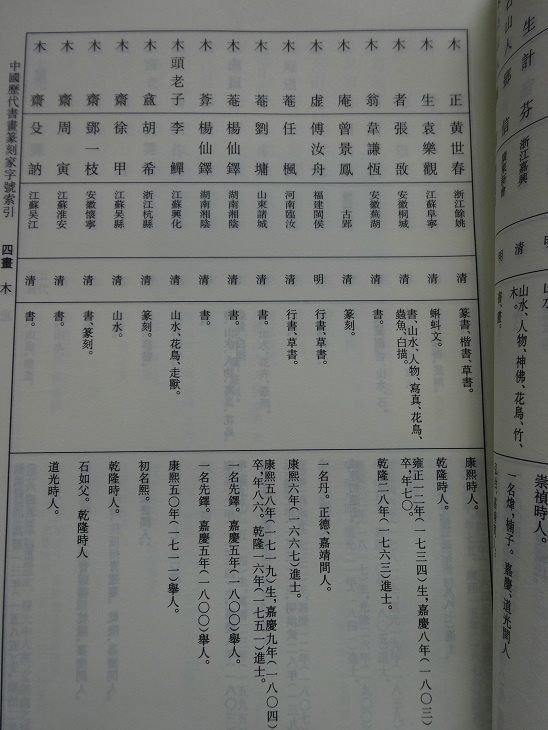 生 計芬 浙江嘉興 清 山水、人物、神佛、花鳥、竹、木。 一名煒,楠子。嘉慶、道光間人
石山人 明 崇禎時人。
木正 黃世春 浙江餘姚 清 篆書、楷書、草書。 康熙時人。
木生 袁樂觀 江蘇阜寧 清 蝌蚪文。 乾隆時人。
木者 張敔 安徽桐城 清 書、山水、人物、寫真、花鳥、蟲魚、白描。 雍正一二年(一七三四)生,嘉慶八年(一八〇三)卒,年七〇。
木翁 韋謙恆 安徽蕪湖 清 書。 乾隆二八年(一七六三)進士。
木庵 曾景鳳 清 篆刻。
木虛 傅汝舟 福建閩侯 明 行書、草書。 一名丹。正德、嘉靖間人。
木菴 任楓 河南臨汝 清 行書、草書。 康熙六年(一六六七)進士。
木菴 劉墉 山東諸城 清 書。 康熙五八年(一七一九)生,嘉慶九年(一八〇四)卒,年八六。乾隆一六年(一七五一)進士。
木菴 楊仙鐸 湖南湘陰 清 書。 一名先鐸。嘉慶五年(一八〇〇)舉人。
木葊 楊仙鐸 湖南湘陰 清 書。 一名先鐸。嘉慶五年(一八〇〇)舉人。
木頭老子 李鱓 江蘇興化 清 山水、花鳥、走獸。 康熙五〇年(一七一一)舉人。
木盦 胡希 浙江杭縣 清 篆刻。 初名熙。
木齋 徐甲 江蘇吳縣 清 山水。 乾隆時人。
木齋 鄧一枝 安徽懷寧 清 書、篆刻。 石如父。乾隆時人
木齋 周寅 江蘇淮安 清 書。
木齋 殳訥 江蘇吳江 清 書。 道光時人。
中國歷代書畫篆刻家字號索引 四畫 木